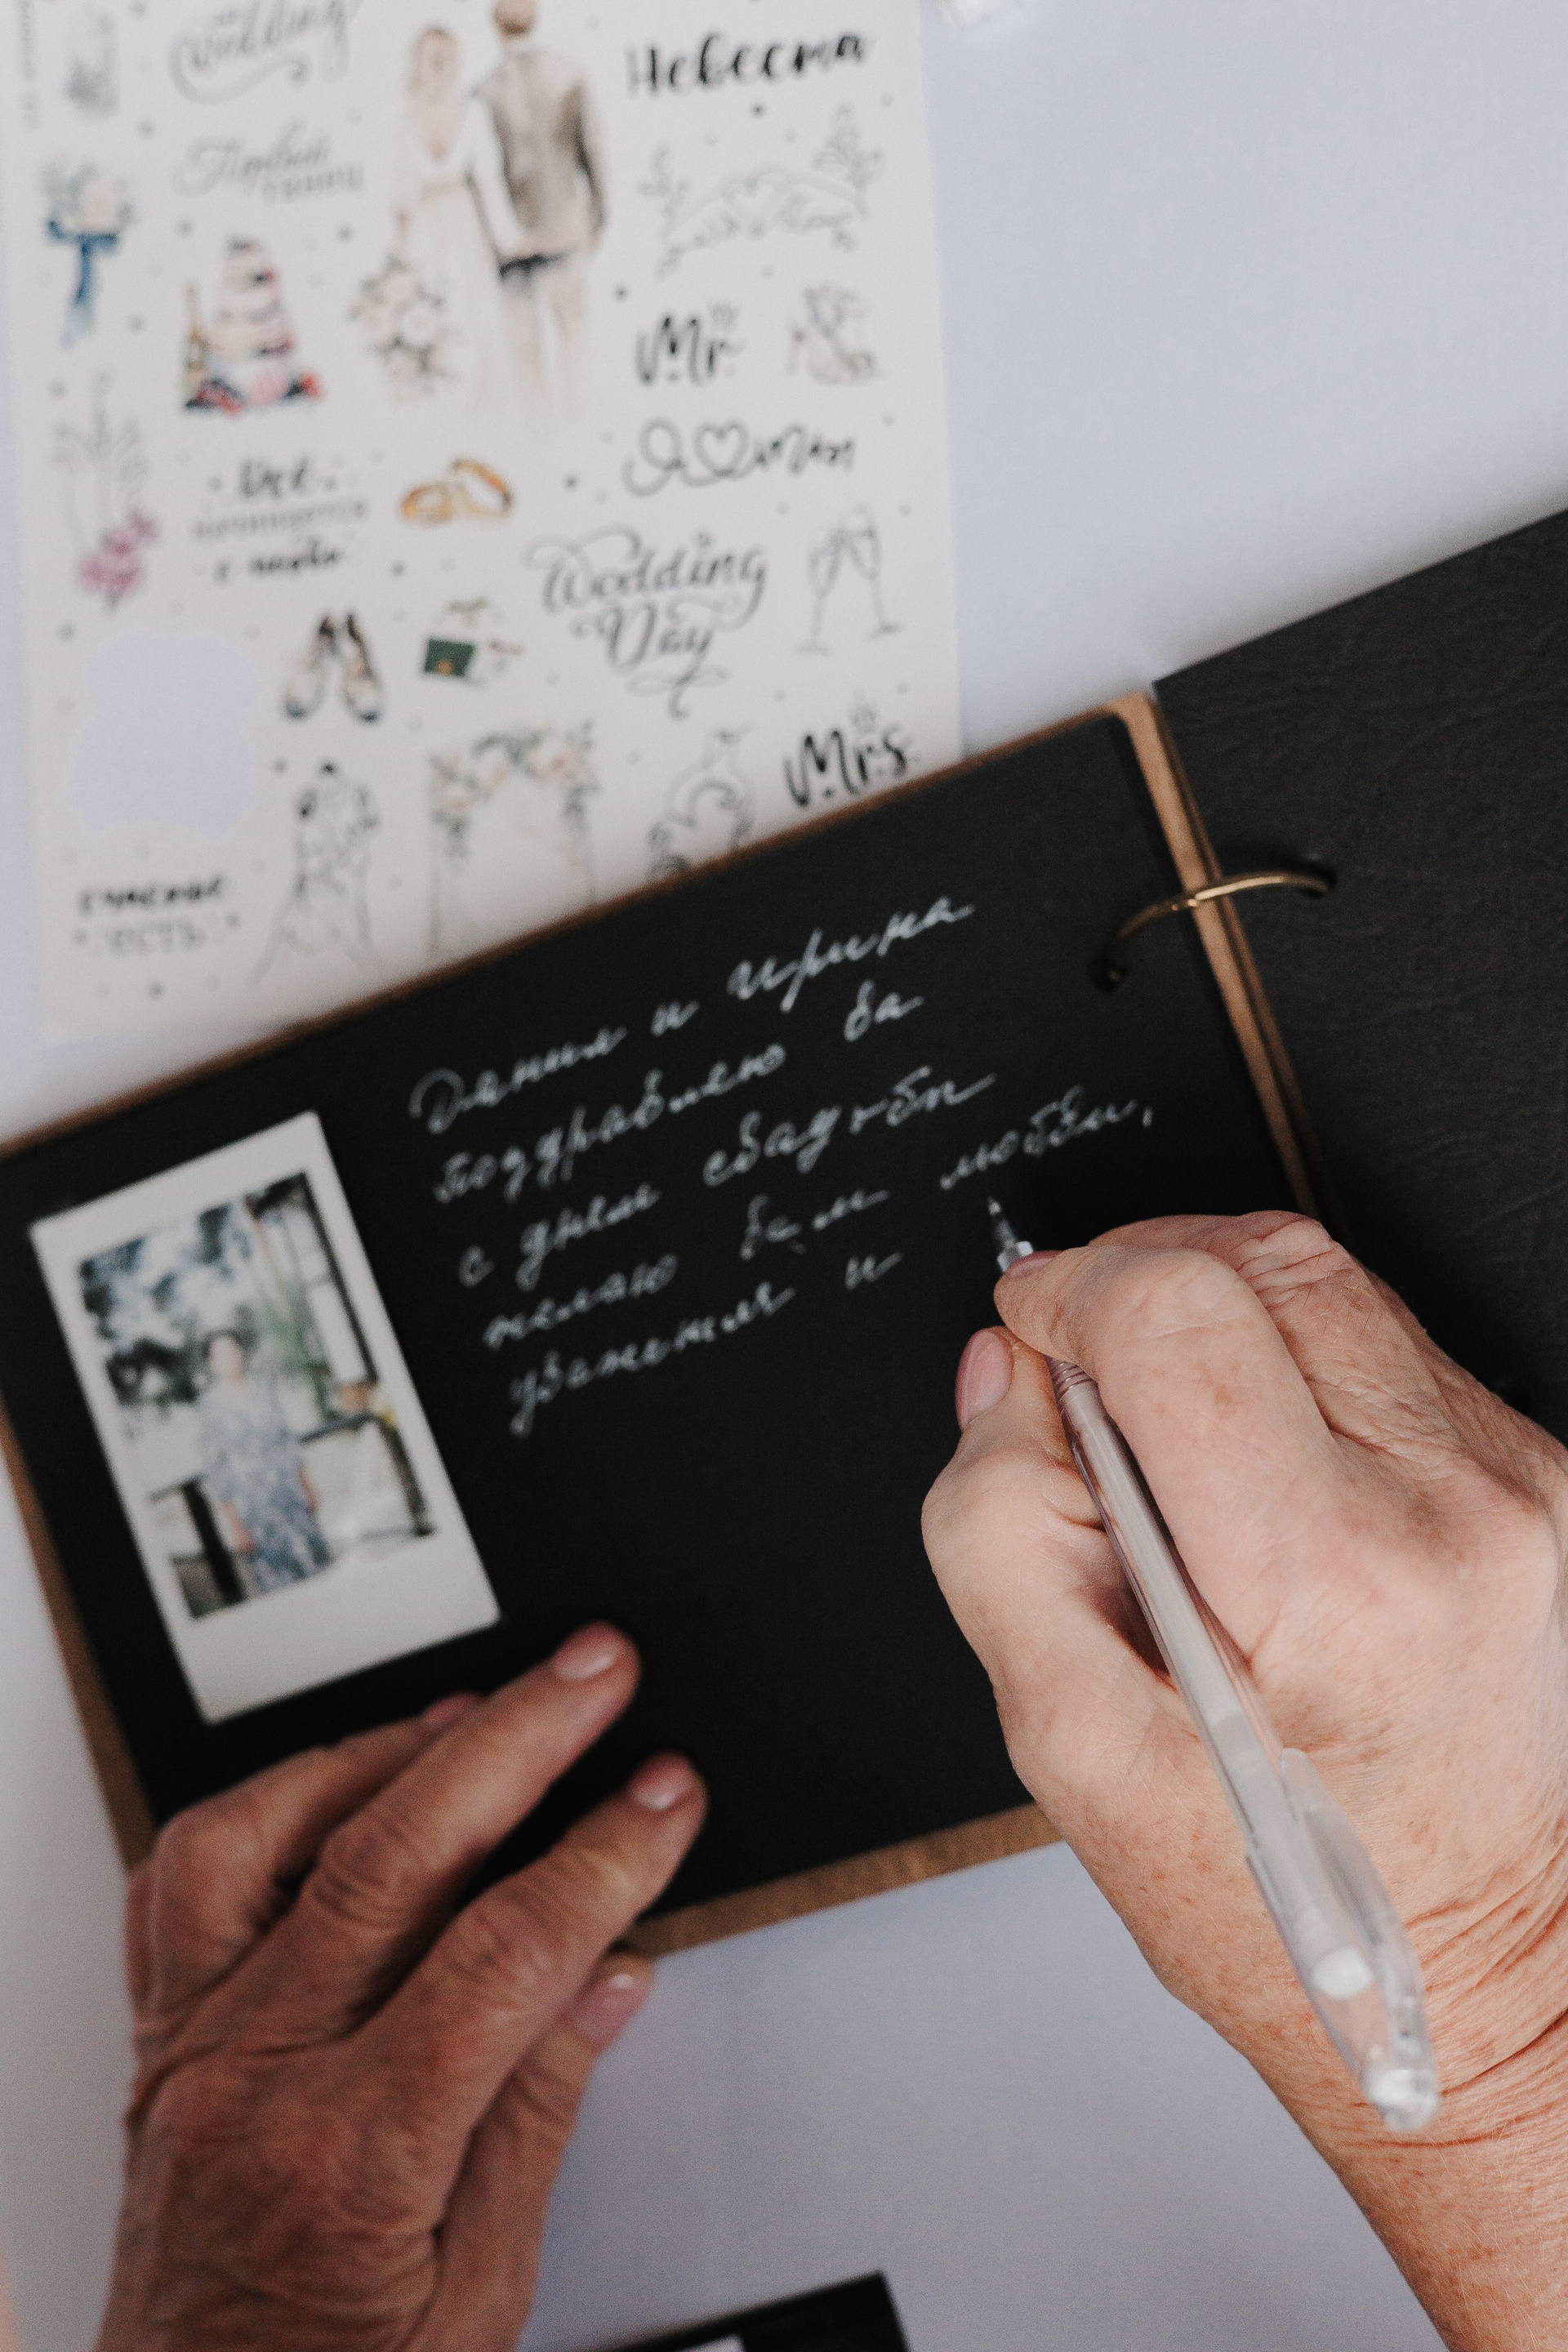 Wedding
Невеста
Первый
танец
Mr.
Я тебя
Всё
начинается
с любви
Wedding
Day
Mrs.
счастье
есть
Данил и Ирина
поздравляю ва
с днём свадьбы
желаю вам любви,
уважения и